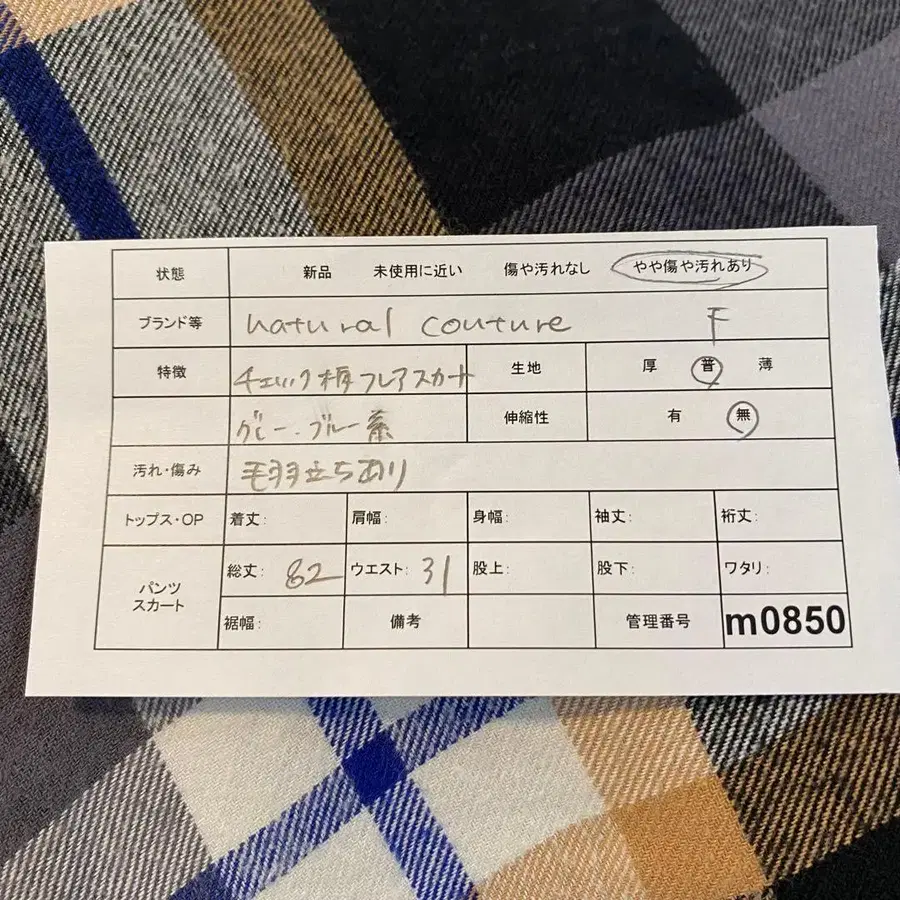 状態 新品 未使用に近い 傷や汚れなし やや傷や汚れあり
ブランド等 natural couture F
特徴 チェック柄フレアスカート 生地 厚 普 薄
グレー・ブルー系 伸縮性 有 無
汚れ・傷み 毛羽立ちあり
トップス・OP 着丈: 肩幅: 身幅: 袖丈: 裄丈:
パンツ スカート 総丈: 82 ウエスト: 31 股上: 股下: ワタリ:
裾幅: 備考 管理番号 m0850